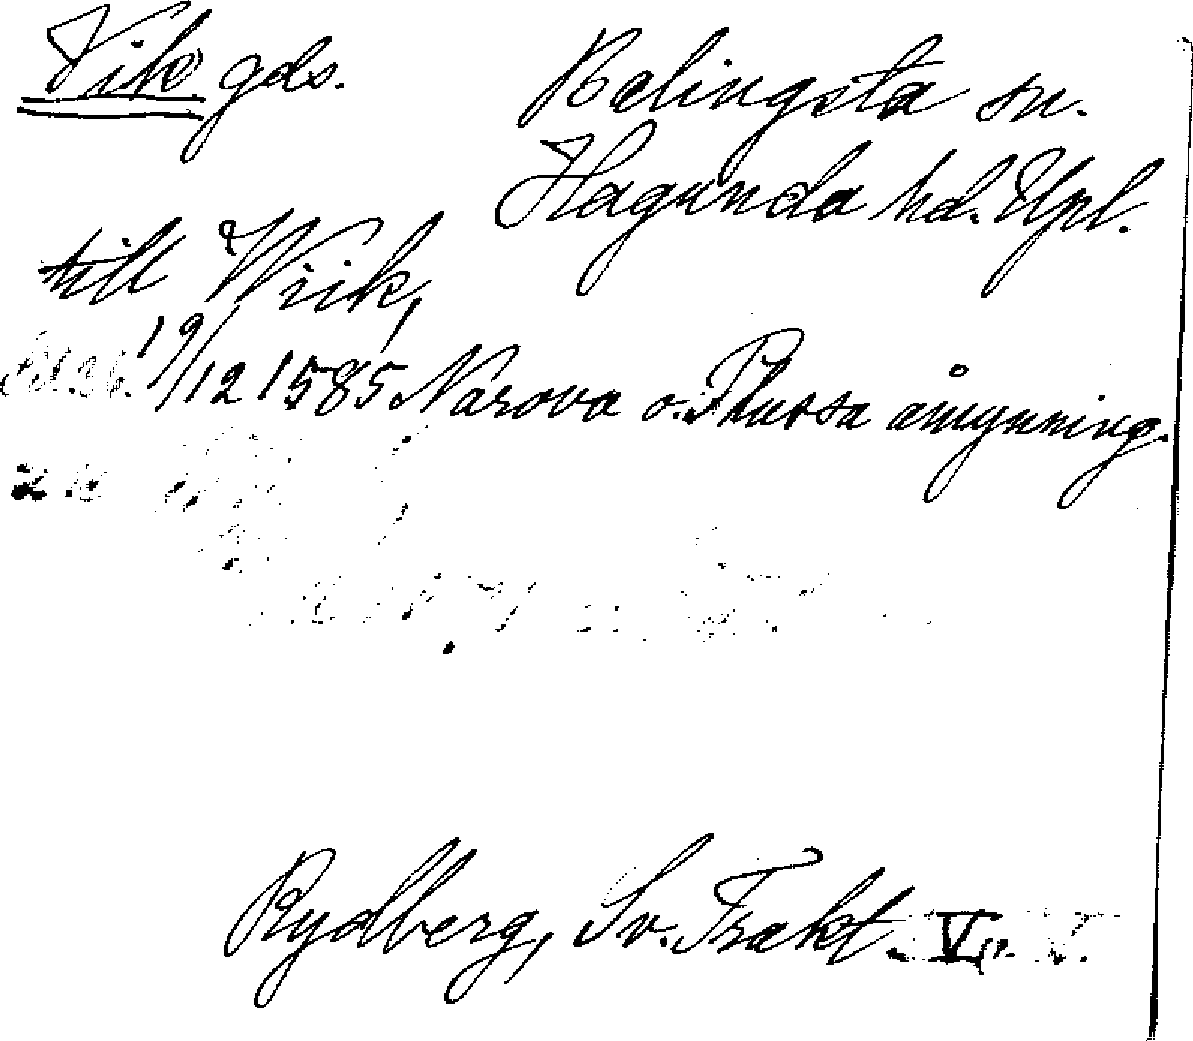 Vik gds.
Balingsta sn.
Hagunda hd. Upl.
till Wiik,
19/12 1585 Narova o. Plussa åmynning.
Rydberg, Sv. Trakt. V